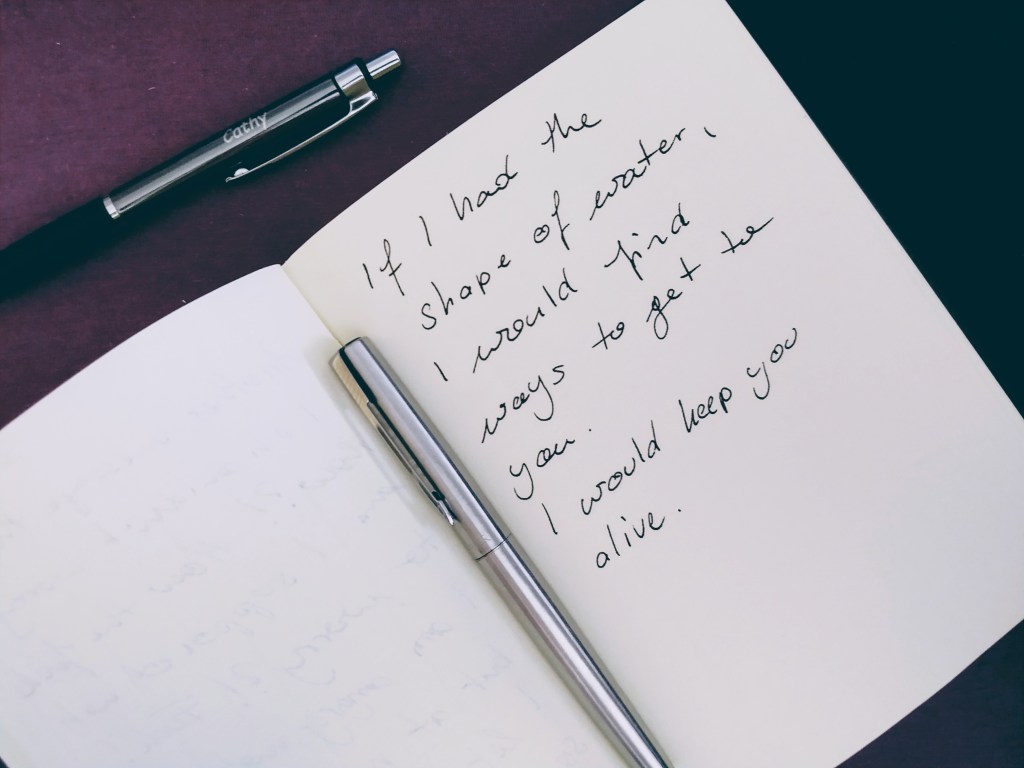 Cathy
If I had the
shape of water,
I would find
ways to get to
you.
I would keep you
alive.